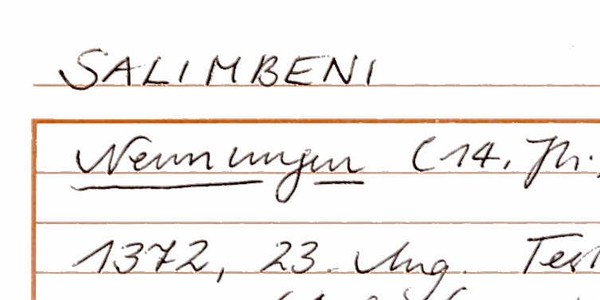 SALIMBENI
Nennungen (14. Jh.,
1372, 23. Aug. Test